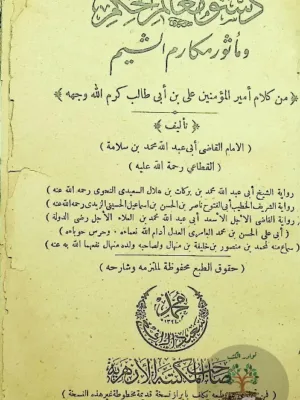 دستور معالم الحكم
ومأثور مكارم الشيم
﴿ من كلام أمير المؤمنين على بن أبى طالب كرم الله وجهه ﴾
﴿ تأليف ﴾
( الامام القاضى أبى عبد الله محمد بن سلامة )
( القطاعى رحمة الله عليه )
رواية الشيخ أبى عبد الله محمد بن بركات بن هلال السعيدى النحوى رحمه الله عنه )
رواية الشريف الخطيب أبى الفتوح ناصر بن الحسن بن اسماعيل الحسينى الزيدى رحمه الله عنه )
رواية القاضى الاجل الاسعد أبى عبد الله محمد بن العلاء الاجل رضى الدولة )
( أبى على الحسن بن محمد العامرى العدل أدام الله نعماءه . وحرس حوباءه )
( سماع منه لمحمد بن منصور بن خليفة بن منهال ولصاحبه ولده منهال نفعهما الله به عنه )
( حقوق الطبع محفوظة لملتزمه وشارحه )
محمد
المكتبة الأزهرية
نوادر الكتب